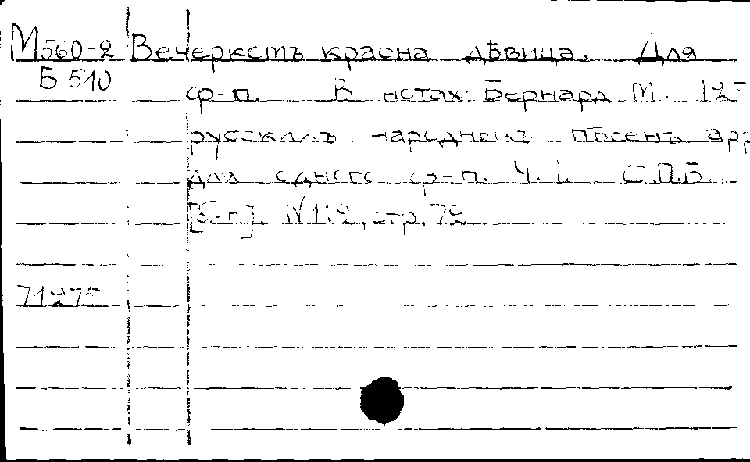 М560-2 Вечеркомъ красна дѣвица. Для
Б 510 ф-п. В нотах: Бернард М. 125
русскихъ народныхъ пѣсенъ арр
для одного ф-п. Ч. 1. С.П.Б.
[б-г]. N 112, стр. 72
7127